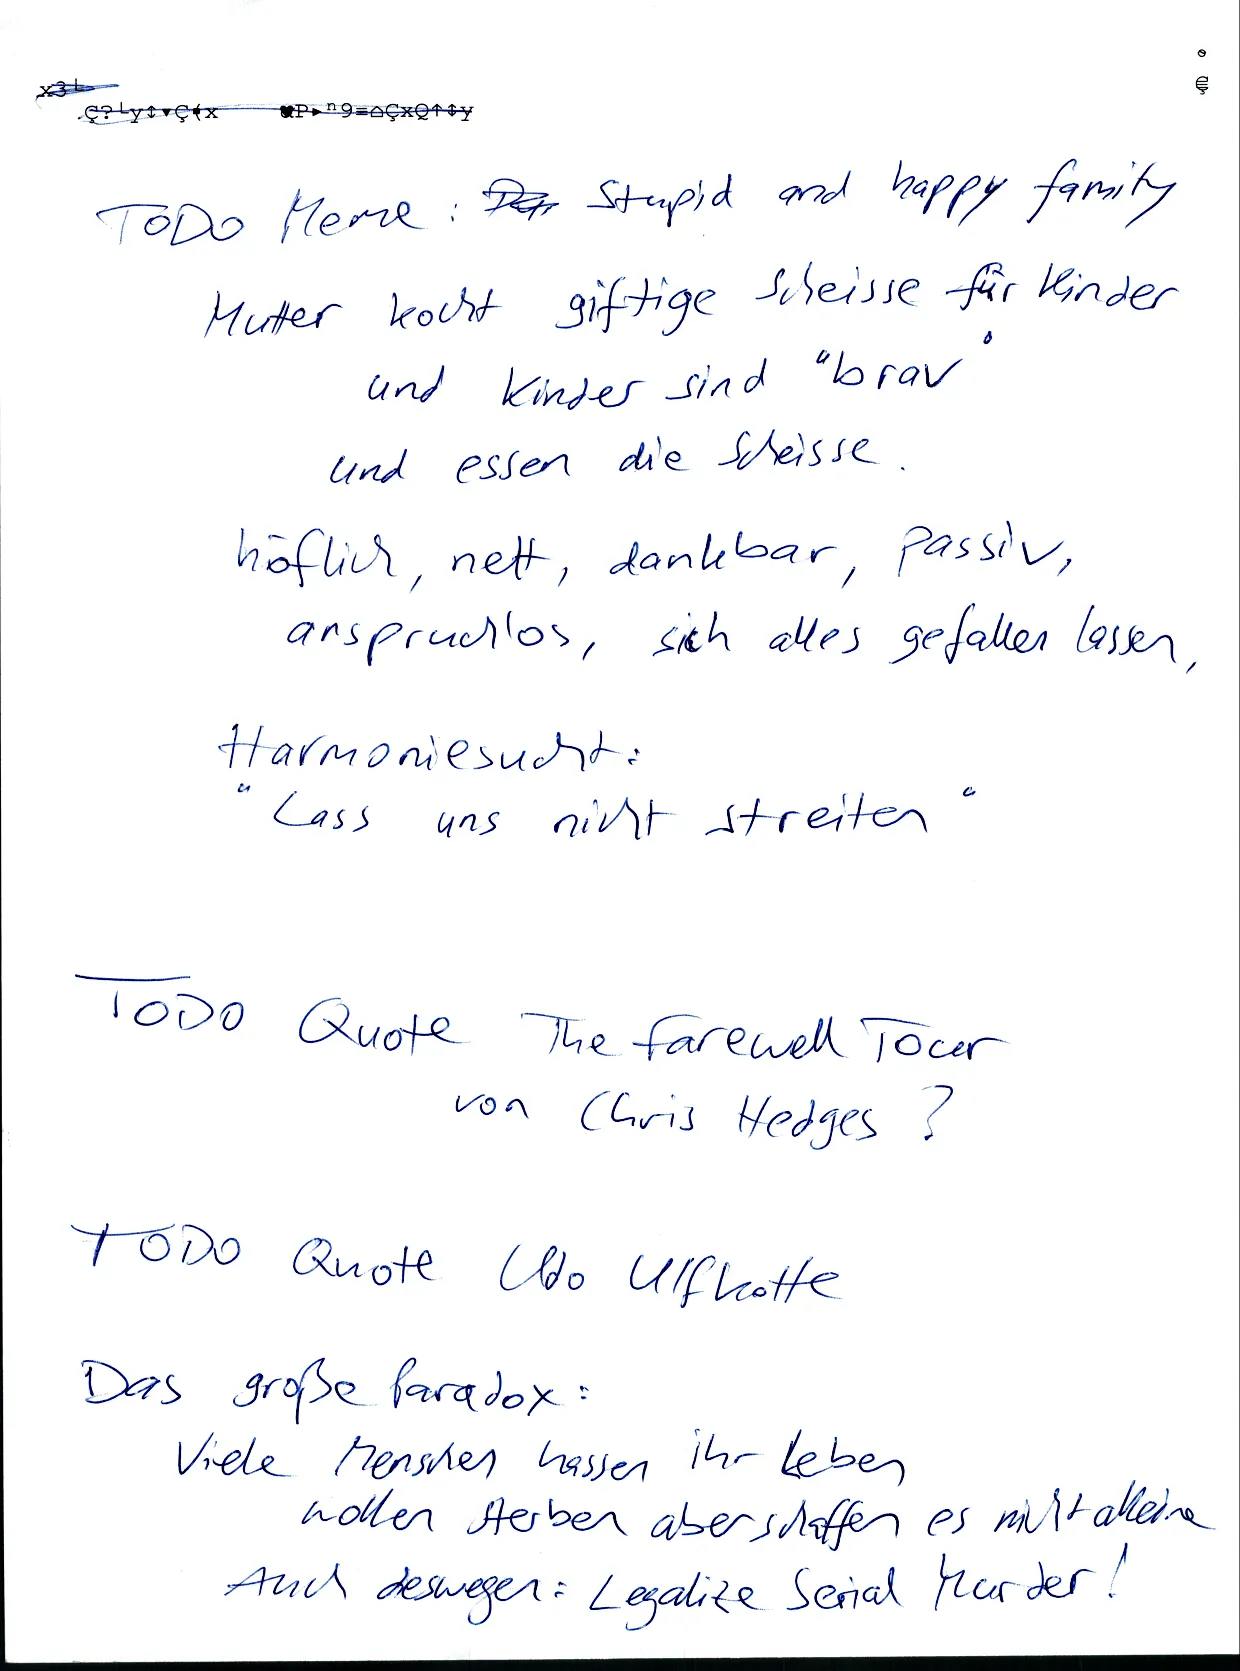 TODO Meme: Stupid and happy family
Mutter kocht giftige Scheisse für Kinder
und Kinder sind "brav"
und essen die Scheisse.
höflich, nett, dankbar, passiv,
anspruchslos, sich alles gefallen lassen,
Harmoniesucht:
"Lass uns nicht streiten"
TODO Quote The Farewell Tour
von Chris Hedges?
TODO Quote Udo Ulfkotte
Das große Paradox:
Viele Menschen hassen ihr Leben
wollen sterben aber schaffen es nicht alleine
Auch deswegen: Legalize Serial Murder!